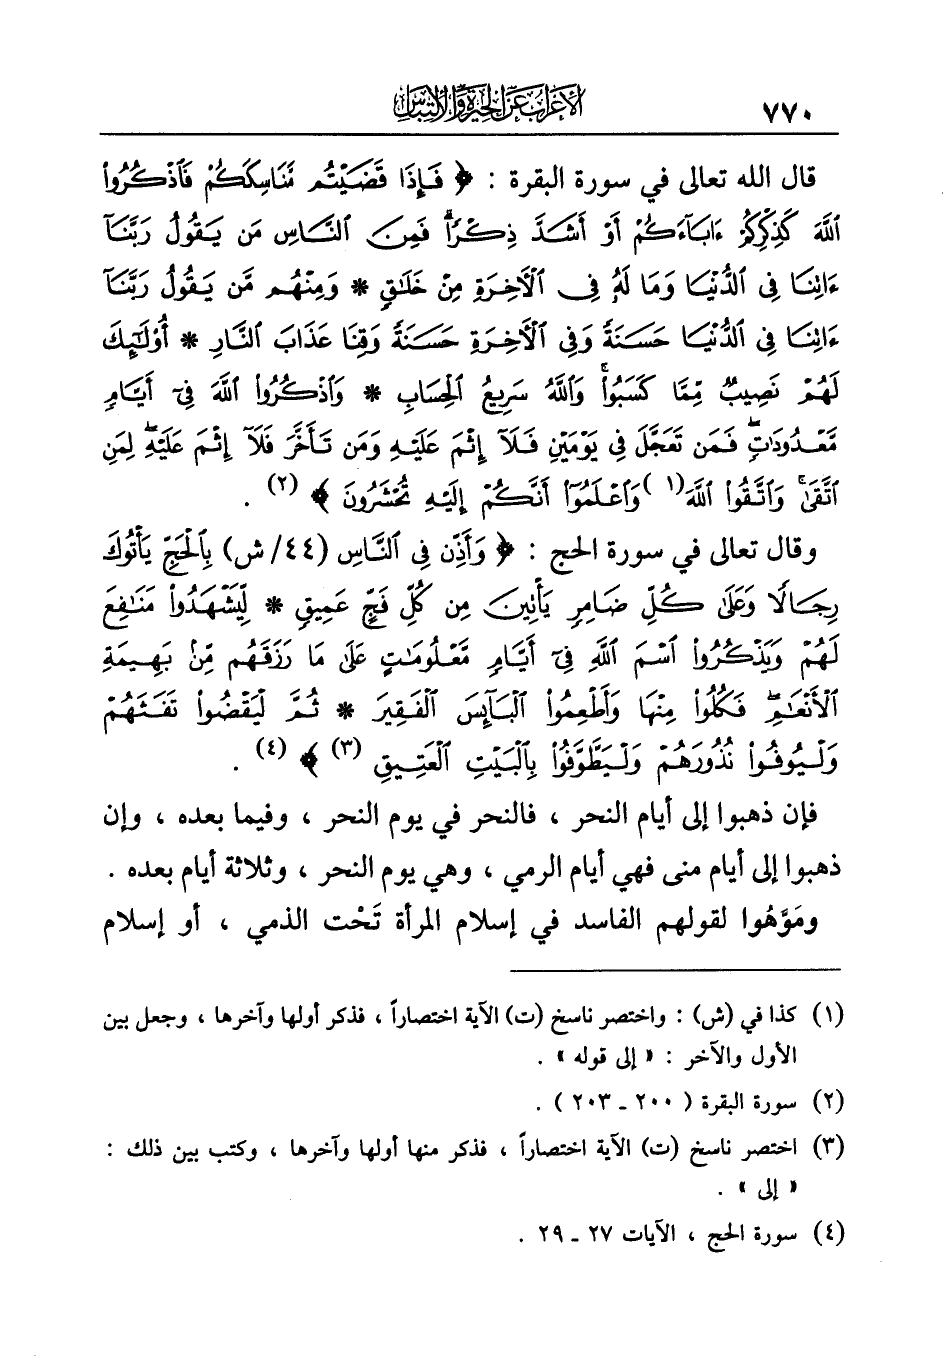 ٧٧٠ الإعراب عن الحيرة والالتباس
قال الله تعالى في سورة البقرة : ﴿ فَإِذَا قَضَيْتُم مَّنَاسِكَكُمْ فَاذْكُرُوا
اللَّهَ كَذِكْرِكُمْ ءَابَآءَكُمْ أَوْ أَشَدَّ ذِكْرًا فَمِنَ النَّاسِ مَن يَقُولُ رَبَّنَآ
ءَاتِنَا فِي الدُّنْيَا وَمَا لَهُ فِي الْآخِرَةِ مِنْ خَلَاقٍ * وَمِنْهُم مَّن يَقُولُ رَبَّنَآ
ءَاتِنَا فِي الدُّنْيَا حَسَنَةً وَفِي الْآخِرَةِ حَسَنَةً وَقِنَا عَذَابَ النَّارِ * أُوْلَٰٓئِكَ
لَهُمْ نَصِيبٌ مِّمَّا كَسَبُوا وَاللَّهُ سَرِيعُ الْحِسَابِ * وَاذْكُرُوا اللَّهَ فِيٓ أَيَّامٍ
مَّعْدُودَاتٍ فَمَن تَعَجَّلَ فِي يَوْمَيْنِ فَلَآ إِثْمَ عَلَيْهِ وَمَن تَأَخَّرَ فَلَآ إِثْمَ عَلَيْهِ لِمَنِ
اتَّقَىٰ وَاتَّقُوا اللَّهَ (١) وَاعْلَمُوٓا أَنَّكُمْ إِلَيْهِ تُحْشَرُونَ ﴾ (٢) .
وقال تعالى في سورة الحج : ﴿ وَأَذِّن فِي النَّاسِ (٤٤/ ش) بِالْحَجِّ يَأْتُوكَ
رِجَالًا وَعَلَىٰ كُلِّ ضَامِرٍ يَأْتِينَ مِن كُلِّ فَجٍّ عَمِيقٍ * لِّيَشْهَدُوا مَنَافِعَ
لَهُمْ وَيَذْكُرُوا اسْمَ اللَّهِ فِيٓ أَيَّامٍ مَّعْلُومَاتٍ عَلَىٰ مَا رَزَقَهُم مِّنۢ بَهِيمَةِ
الْأَنْعَامِ فَكُلُوا مِنْهَا وَأَطْعِمُوا الْبَآئِسَ الْفَقِيرَ * ثُمَّ لْيَقْضُوا تَفَثَهُمْ
وَلْيُوفُوا نُذُورَهُمْ وَلْيَطَّوَّفُوا بِالْبَيْتِ الْعَتِيقِ (٣) ﴾ (٤) .
فإن ذهبوا إلى أيام النحر ، فالنحر في يوم النحر ، وفيما بعده ، وإن
ذهبوا إلى أيام منى فهي أيام الرمي ، وهي يوم النحر ، وثلاثة أيام بعده .
ومَوَّهُوا لقولهم الفاسد في إسلام المرأة تَحْت الذمي ، أو إسلام
(١) كذا في (ش) : واختصر ناسخ (ت) الآية اختصاراً ، فذكر أولها وآخرها ، وجعل بين
الأول والآخر : « إلى قوله » .
(٢) سورة البقرة ( ٢٠٠ ـ ٢٠٣ ) .
(٣) اختصر ناسخ (ت) الآية اختصاراً ، فذكر منها أولها وآخرها ، وكتب بين ذلك :
« إلى » .
(٤) سورة الحج ، الآيات ٢٧ ـ ٢٩ .